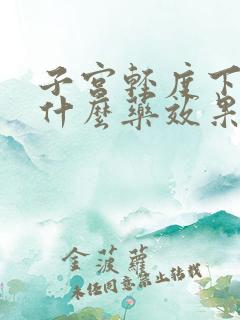 子宫轻度下
什麽药效果
金菠萝
未经同意禁止转载